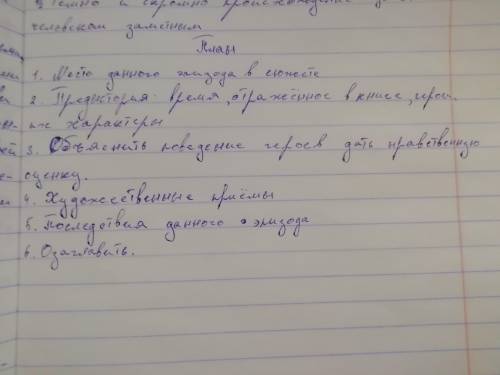 темно и скромно происхождение
человеком заметным
План
1. Место данного эпизода в сюжете
2. Предистория: время, отражённое в книге, герои.
их характеры
3. Объяснить поведение героев дать нравственную
оценку.
4. Художественные приёмы
5. Последствия данного эпизода
6. Озаглавить.